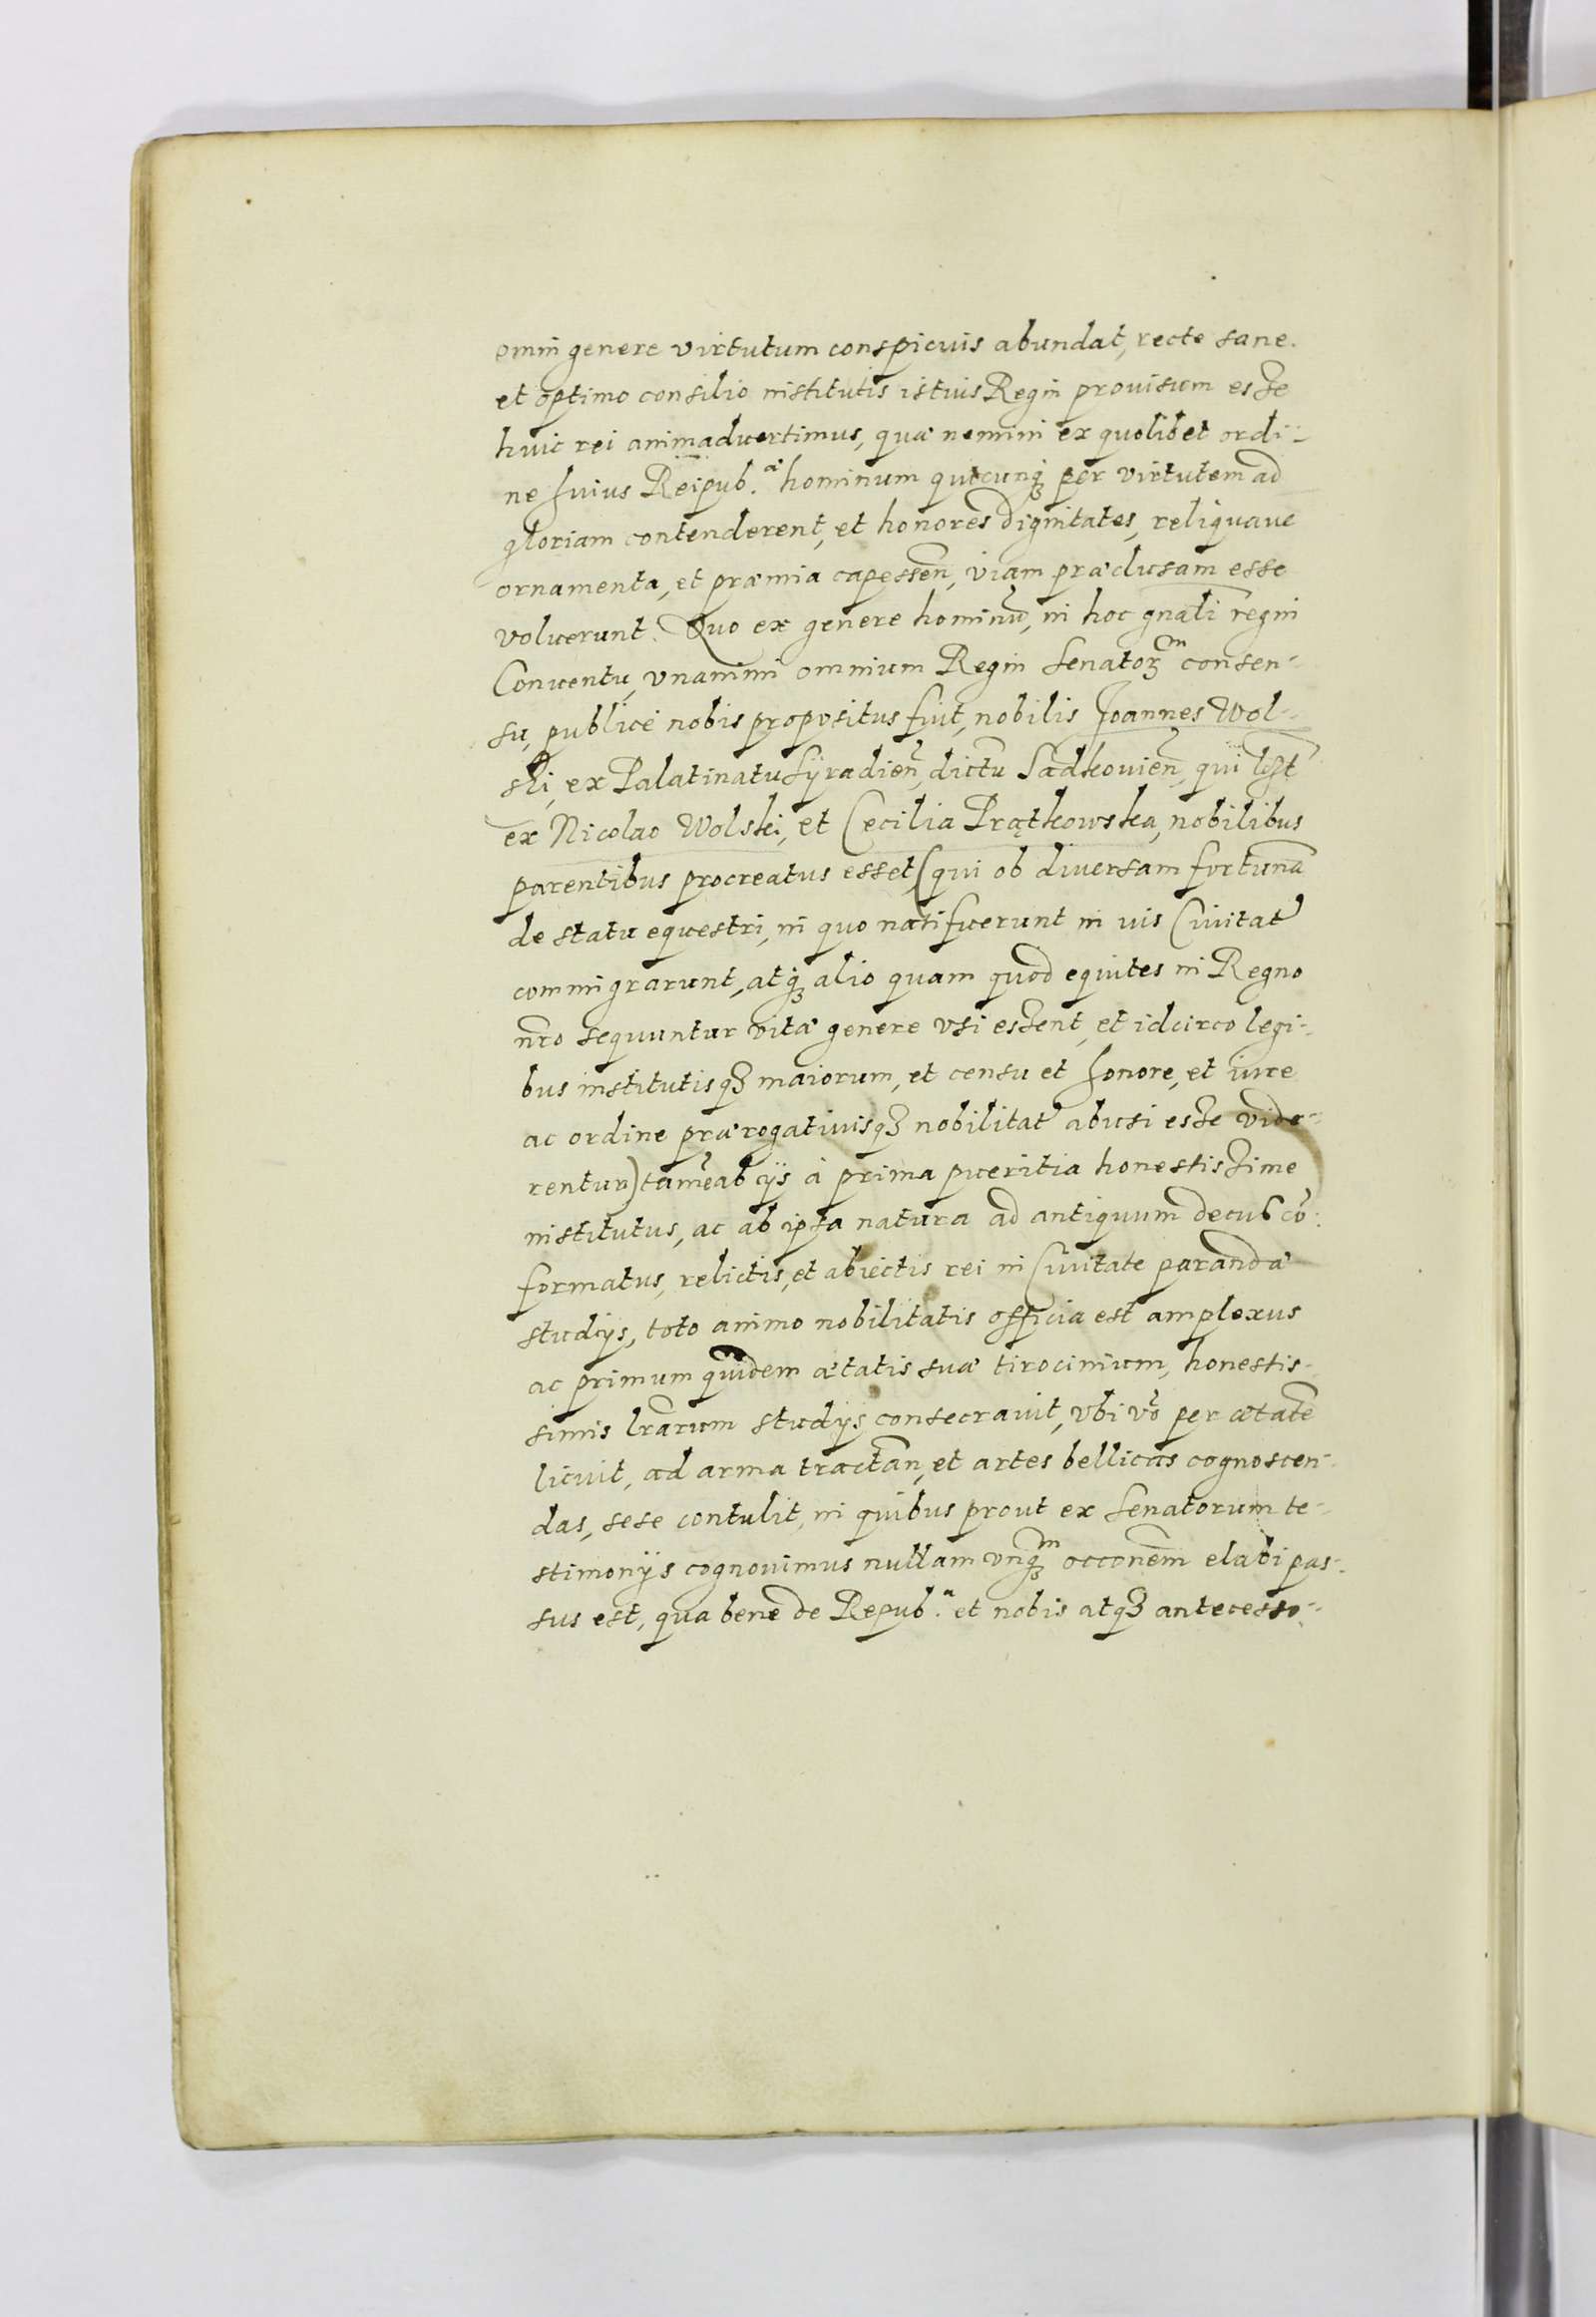 omni genere virtutum conspicuis abundat, recte sane.
et optimo consilio institutis istius Regni prouisum esse
huic rei animaduertimus, quæ nemini ex quolibet ordi-
ne huius Reipub.æ hominum qui cunq3 per virtutem ad
gloriam contenderent, et honores dignitates, reliquaue
ornamenta, et præmia capessen̄, viam præclusam esse
voluerunt. Quo ex genere hominū, in hoc gnāli regni
Conuentu, vnanimi omnium Regni Senatorꝫm consen-
su, publicè nobis propositus fuit, nobilis Joannes Wol-
ski, ex Palatinatu Syradien̄, dictu Sadkouien̄, qui lꝫt
ex Nicolao Wolski, et Cecilia Prątkowska, nobilibus
parentibus procreatus esset, (qui ob diuersam fortunā
de statu equestri, in quo nati fuerunt in uis Ciuitat
commigrarunt, atq3 alio quam quod equites in Regno
nr̄o sequuntur vitæ genere vsi essent, et idcirco legi-
bus institutisq3 maiorum, et censu et honore, et iure
ac ordine prærogatiuisq3 nobilitat abusi esse vide-
rentur) tamē ab ijs à prima pueritia honestissime
institutus, ac ab ipsa natura ad antiquum decus cō-
formatus, relictis, et abiectis rei in Ciuitate parandæ
studijs, toto animo nobilitatis officia est amplexus
ac primum quidem ætatis suæ tirocinium, honestis-
simis lr̄arum studijs consecrauit, vbi vō per ætatē
licuit, ad arma tractan̄, et artes bellicas cognoscen-
das, sese contulit, in quibus prout ex Senatorum te-
stimonijs cognouimus nullam vnq3m occonēm elabi pas-
sus est, qua bene de Repub.a et nobis atq3 antecesso-